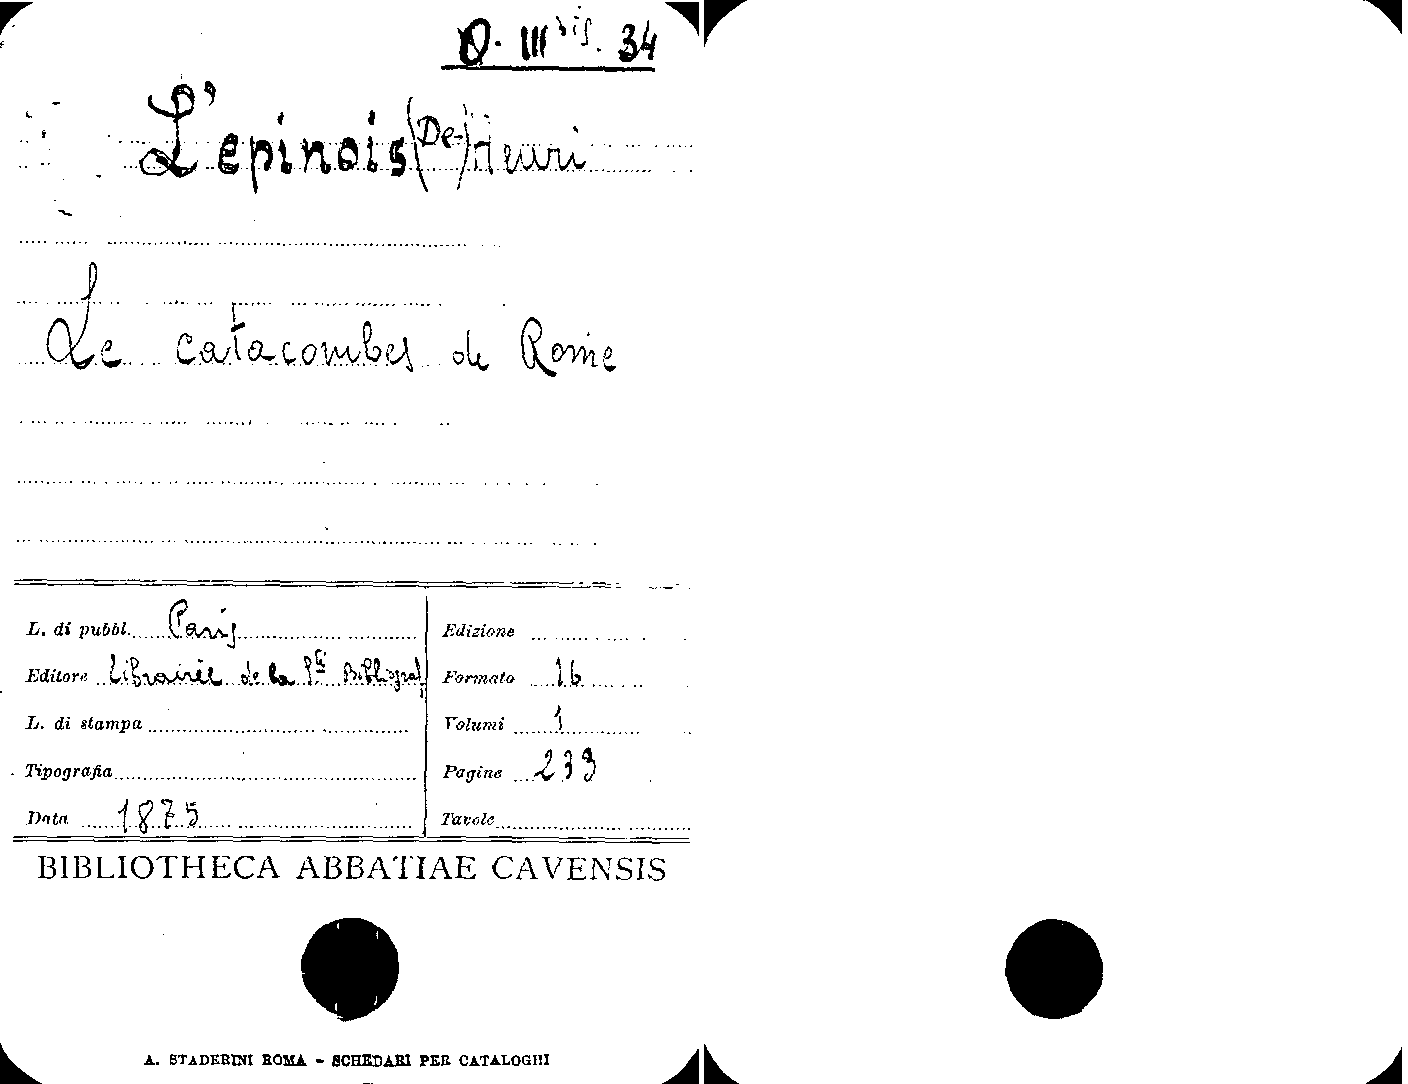 O. III bis. 34
L'Epinois (De) Henri
Le catacombes de Rome
L. di pubbl. Paris
Editore Librairie de la Sté Bibliograf
L. di stampa
Tipografia
Data 1875
Edizione
Formato 16
Volumi 1
Pagine 233
Tavole
BIBLIOTHECA ABBATIAE CAVENSIS
A. STADERINI ROMA - SCHEDARI PER CATALOGHI